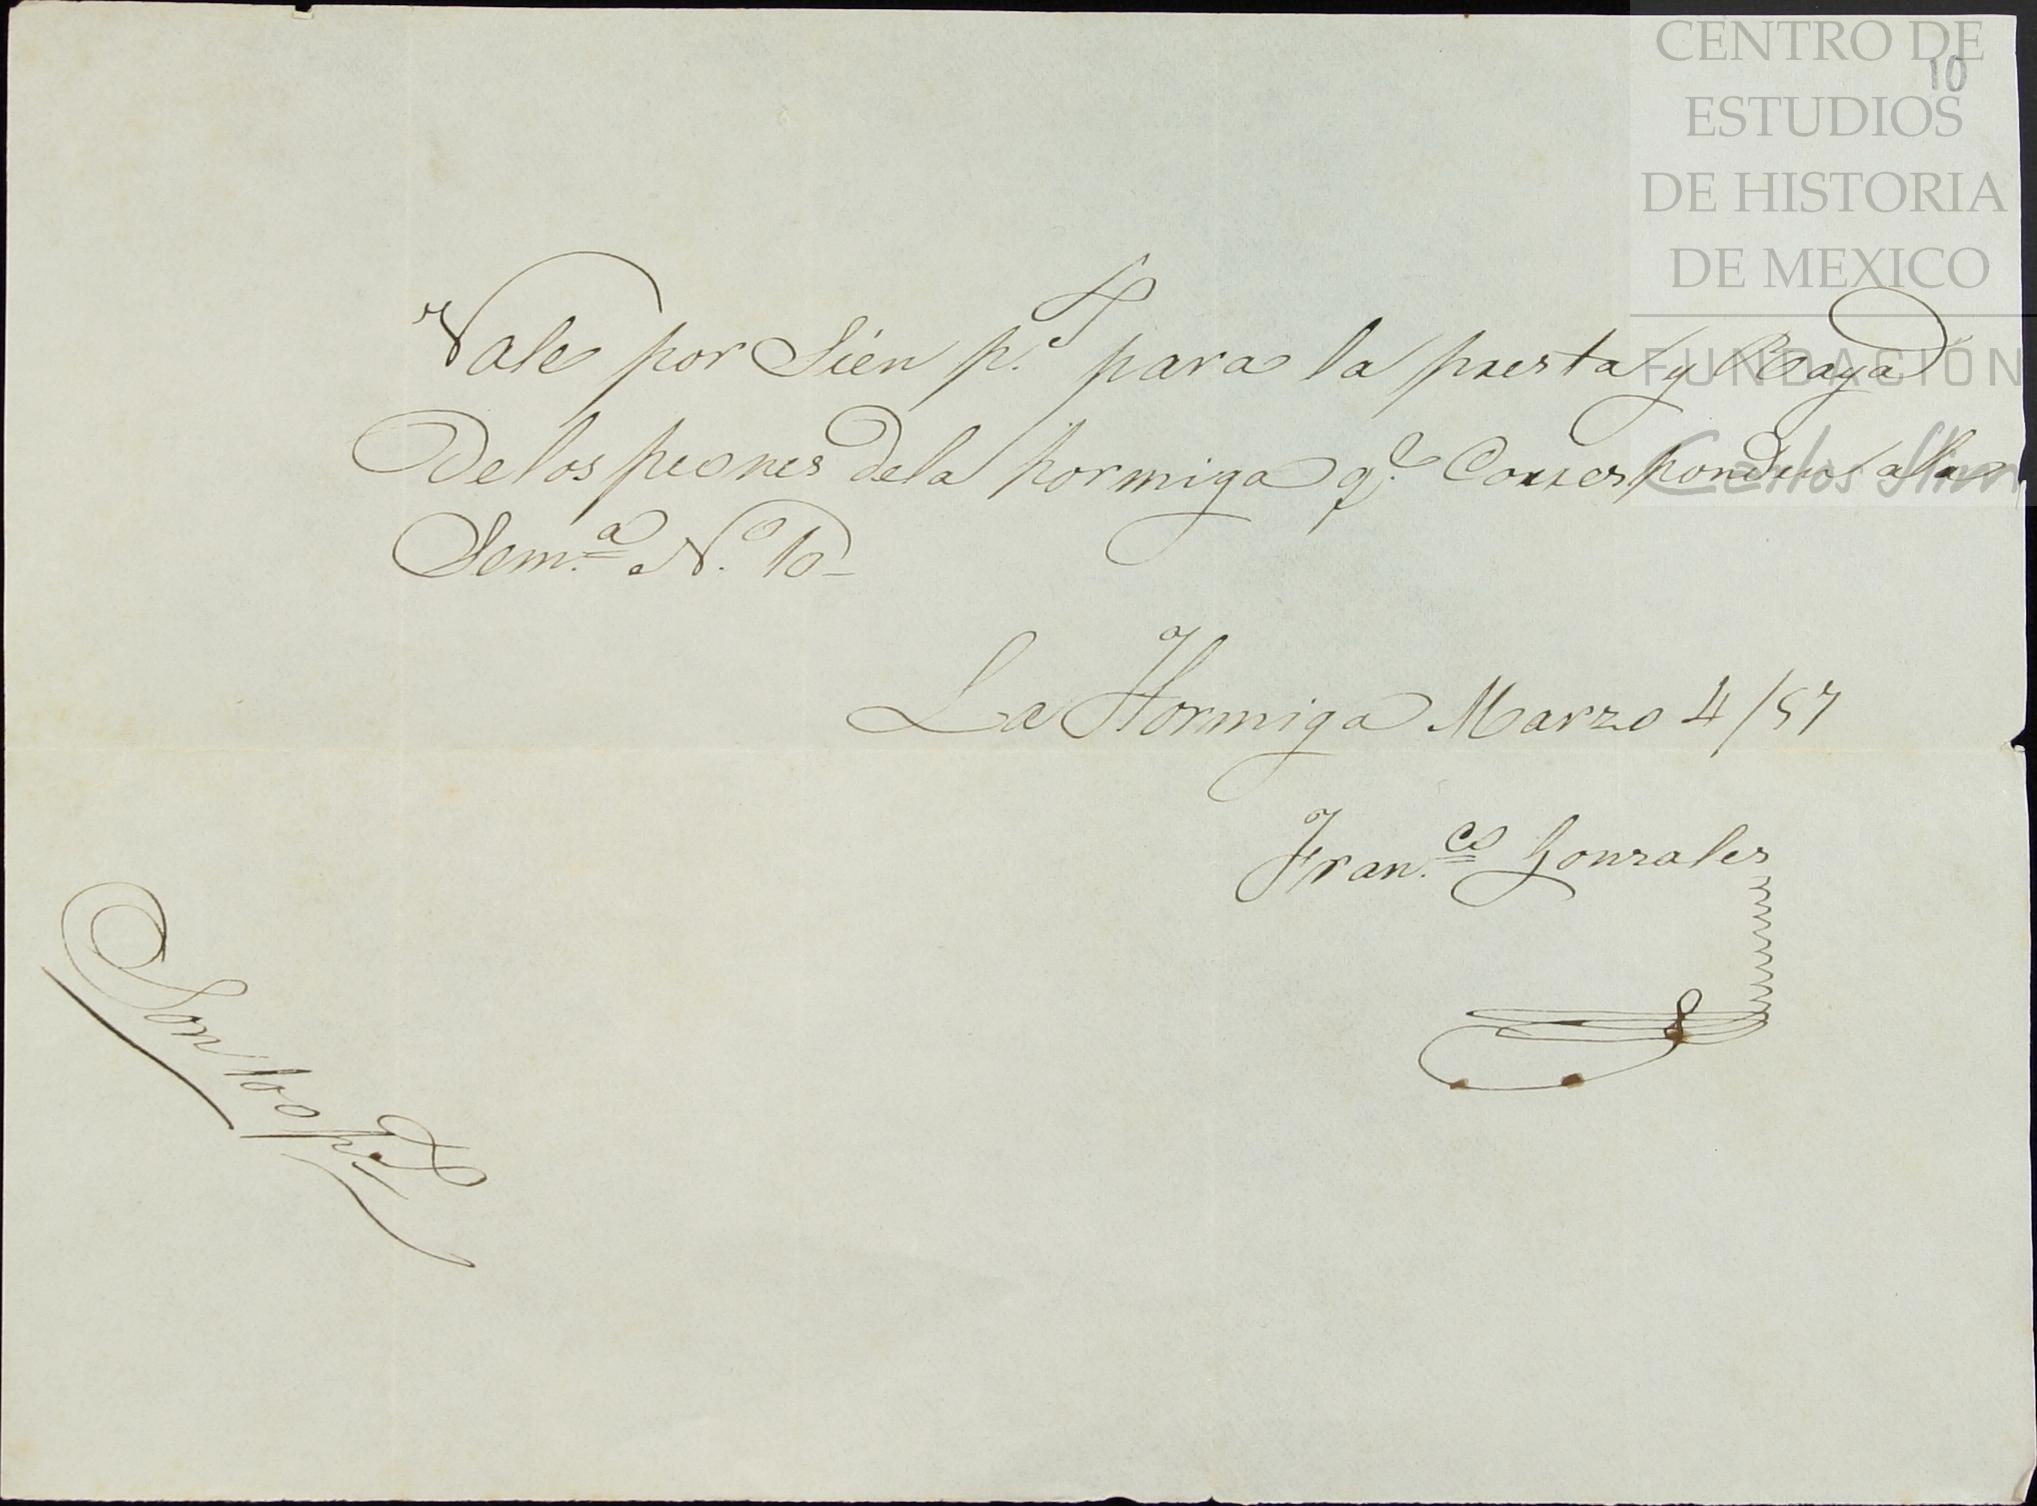 CENTRO DE
10
ESTUDIOS
DE HISTORIA
DE MEXICO
FUNDACIÓN
Carlos Slim
Vale por Sien p.s para la puesta y Raya
De los peones de la hormiga q.e Corresponden a la
Sem.a N.o 10
La Hormiga Marzo 4/57
Fran.co Gonzales
Son 100 p.s